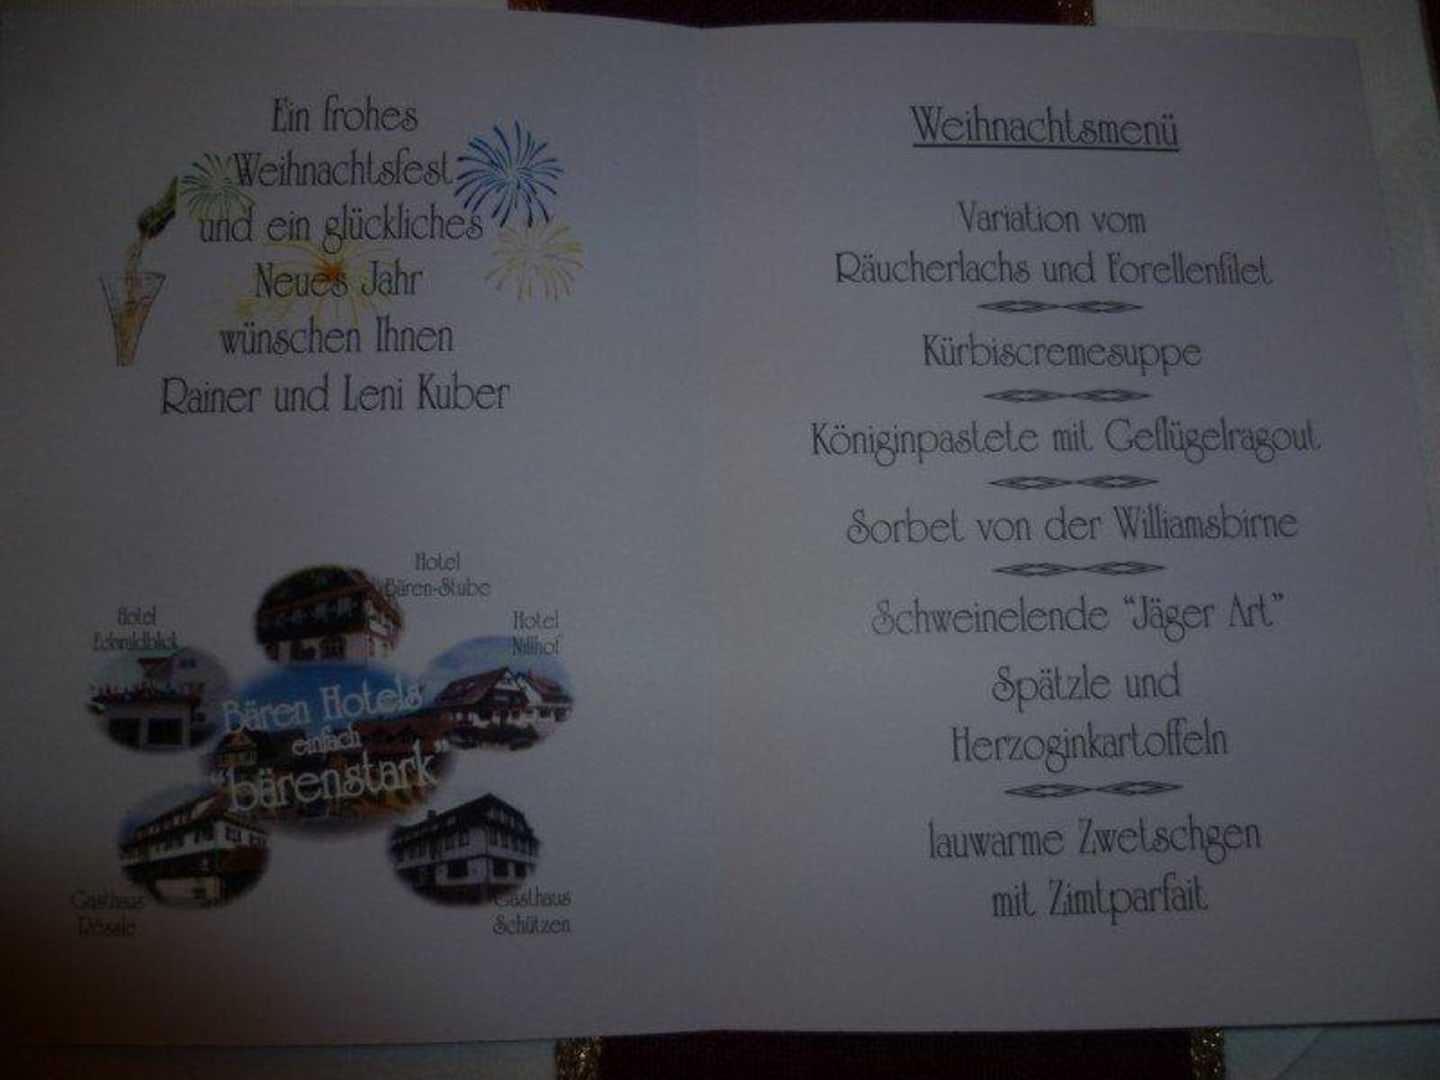 Ein frohes
Weihnachtsfest
und ein glückliches
Neues Jahr
wünschen Ihnen
Rainer und Leni Kuber
Hotel
Bären-Stube
Hotel
Eckwaldblick
Hotel
Nillhof
Bären Hotels
einfach
"bärenstark"
Gasthaus
Rössle
Gasthaus
Schützen
Weihnachtsmenü
Variation vom
Räucherlachs und Forellenfilet
Kürbiscremesuppe
Königinpastete mit Geflügelragout
Sorbet von der Williamsbirne
Schweinelende "Jäger Art"
Spätzle und
Herzoginkartoffeln
lauwarme Zwetschgen
mit Zimtparfait